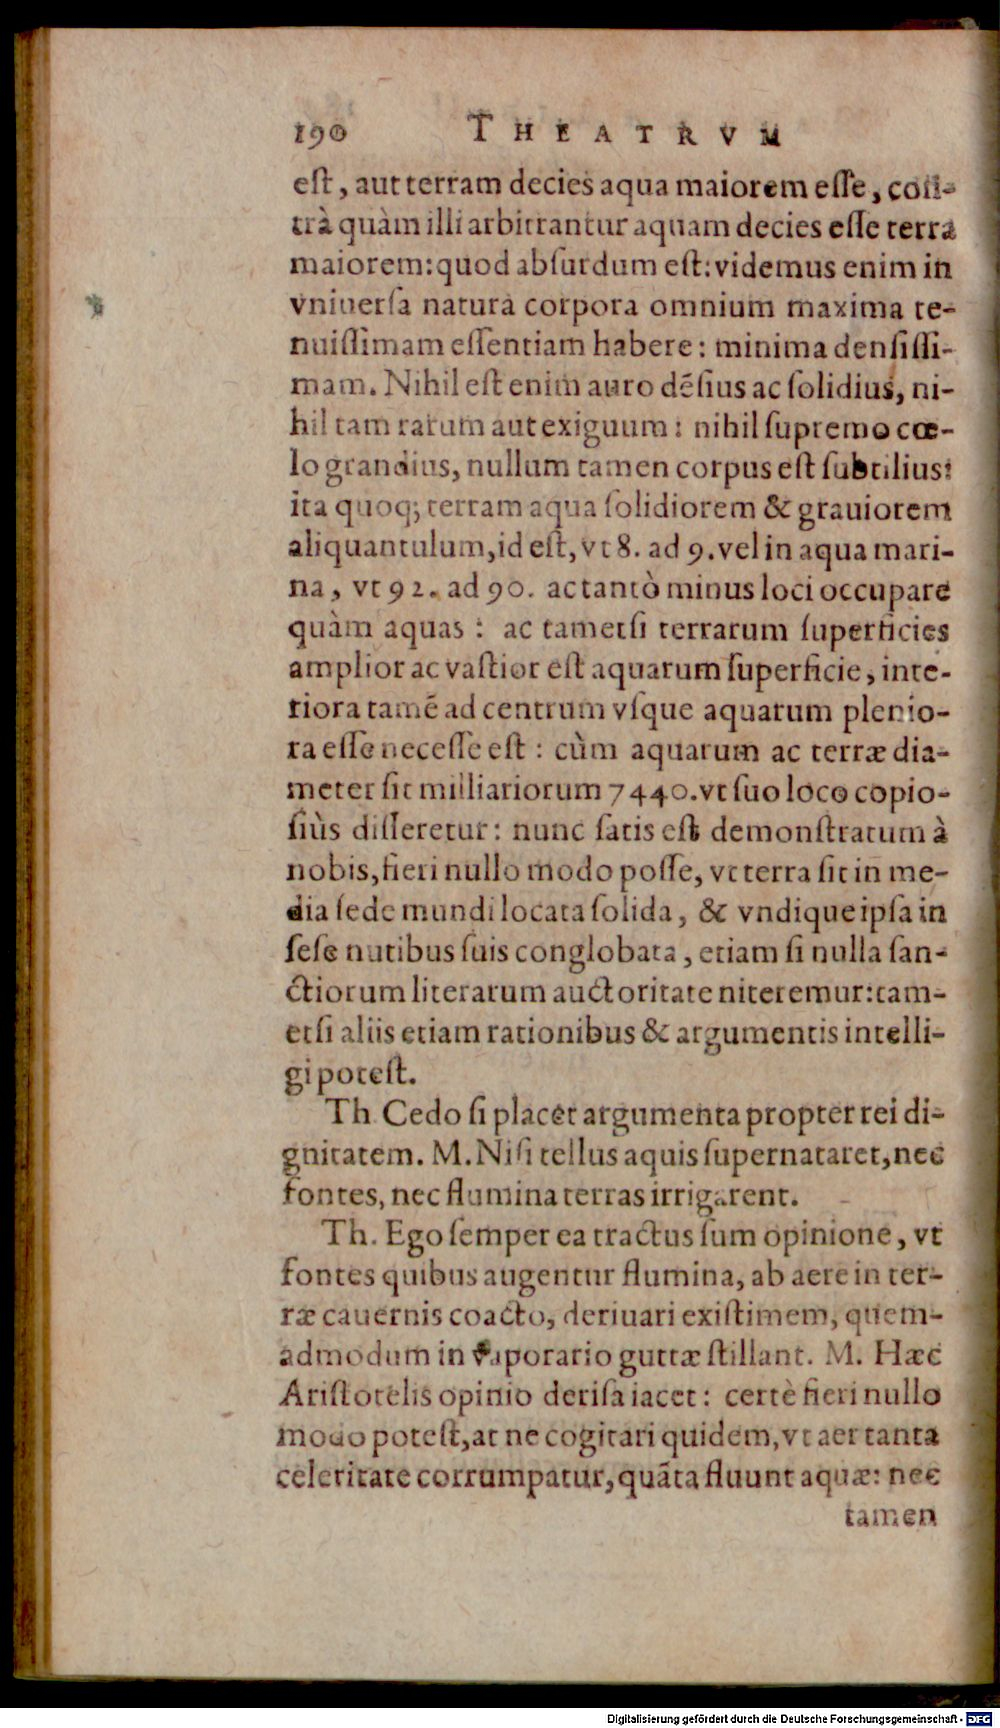 190 THEATRVM
eſt, aut terram decies aqua maiorem eſſe, con-
trà quàm illi arbitrantur aquam decies eſſe terra
maiorem: quod abſurdum eſt: videmus enim in
vniuerſa natura corpora omnium maxima te-
nuiſſimam eſſentiam habere: minima denſiſſi-
mam. Nihil eſt enim auro dēſius ac ſolidius, ni-
hil tam rarum aut exiguum: nihil ſupremo cœ-
lo grandius, nullum tamen corpus eſt ſubtilius:
ita quoq; terram aqua ſolidiorem & grauiorem
aliquantulum, id eſt, vt 8. ad 9. vel in aqua mari-
na, vt 92. ad 90. ac tantò minus loci occupare
quàm aquas: ac tametſi terrarum ſuperficies
amplior ac vaſtior eſt aquarum ſuperficie, inte-
riora tamē ad centrum vſque aquarum plenio-
ra eſſe neceſſe eſt: cùm aquarum ac terræ dia-
meter ſit milliariorum 7440. vt ſuo loco copio-
ſiùs diſſeretur: nunc ſatis eſt demonſtratum à
nobis, fieri nullo modo poſſe, vt terra ſit in me-
dia ſede mundi locata ſolida, & vndique ipſa in
ſeſe nutibus ſuis conglobata, etiam ſi nulla ſan-
ctiorum literarum auctoritate niteremur: tam-
etſi aliis etiam rationibus & argumentis intelli-
gi poteſt.
Th. Cedo ſi placet argumenta propter rei di-
gnitatem. M. Niſi tellus aquis ſupernataret, nec
fontes, nec flumina terras irrigarent.
Th. Ego ſemper ea tractus ſum opinione, vt
fontes quibus augentur flumina, ab aere in ter-
ræ cauernis coacto, deriuari exiſtimem, quem-
admodum in vaporario guttæ ſtillant. M. Hæc
Ariſtotelis opinio deriſa iacet: certè fieri nullo
modo poteſt, at ne cogitari quidem, vt aer tanta
celeritate corrumpatur, quāta fluunt aquæ: nec
tamen
Digitalisierung gefördert durch die Deutsche Forschungsgemeinschaft - DFG